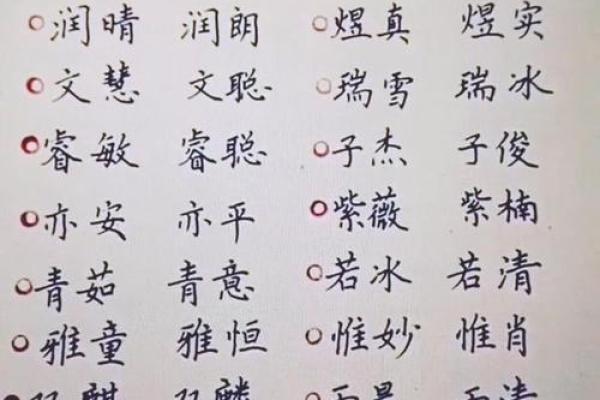 润晴 润朗 煜真 煜实
文慧 文聪 瑞雪 瑞冰
睿敏 睿聪 子杰 子俊
亦安 亦平 紫薇 紫楠
青茹 青意 若冰 若清
雅童 雅恒 惟妙 惟肖